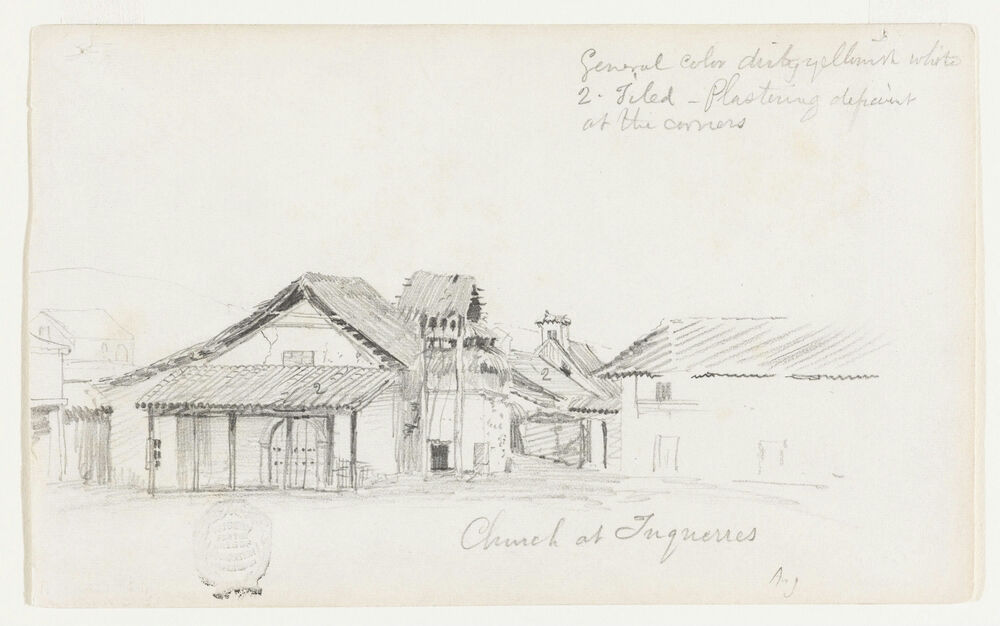 General color dirty yellowish white
2 - Tiled - Plastering
at the corners
2
2
Church at Tuquerres
Aug